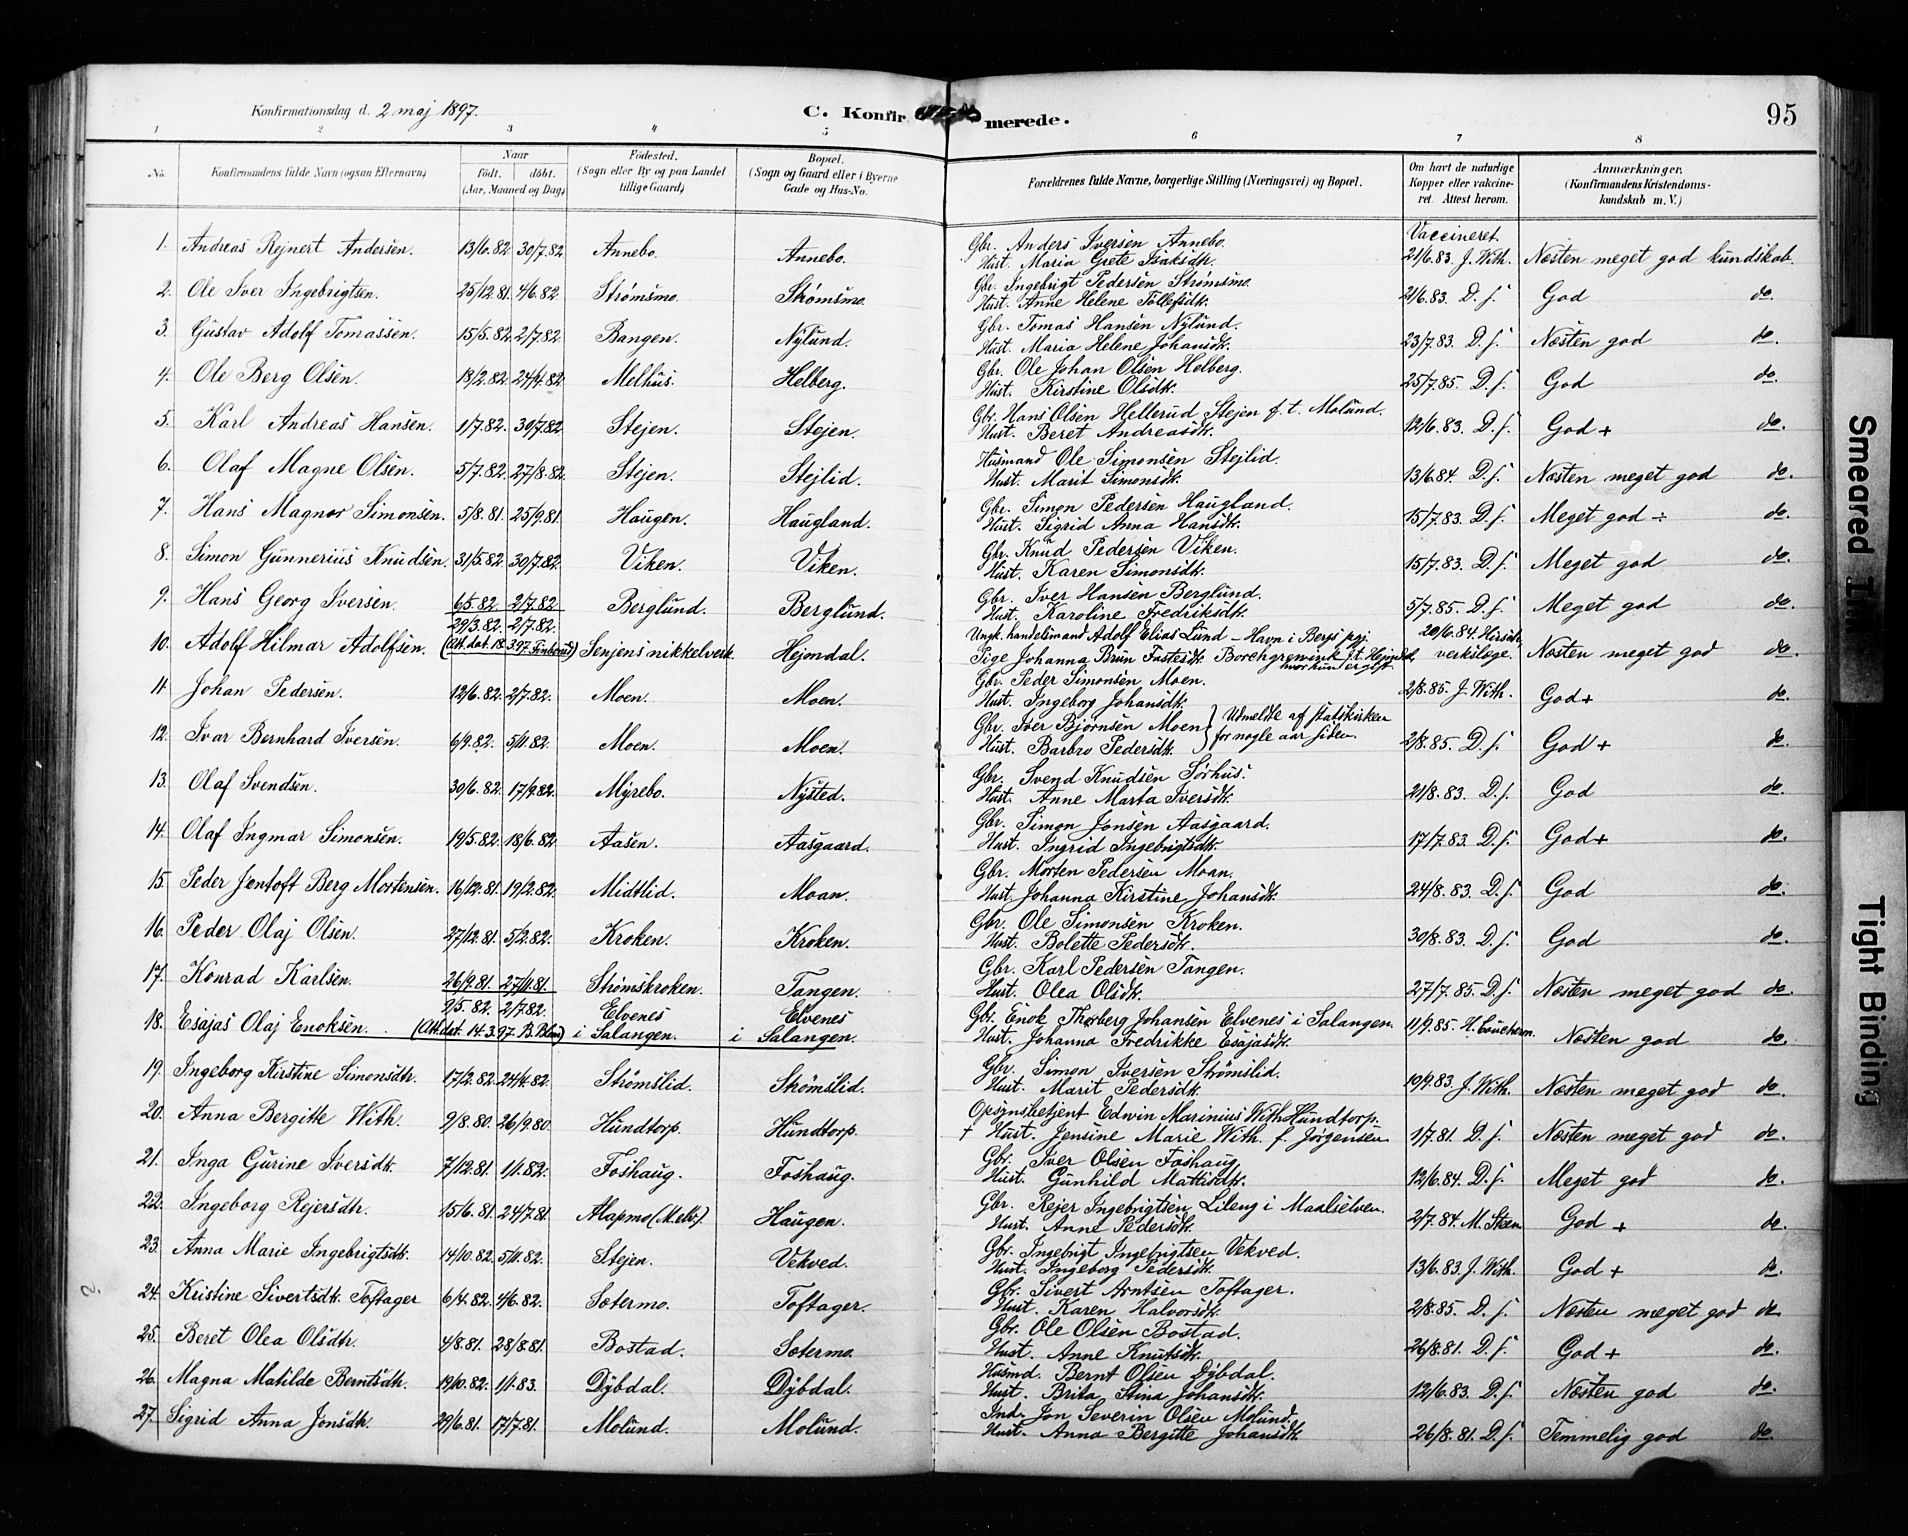 Konfirmationsdag d. 2 maj 1897.
C. Konfir merede.
95
1 2 3 4 5 6 7 8
No. Konfirmandens fulde Navn (ogsaa Efternavn) Naar født. døbt. (Aar, Maaned og Dag) Fødested. (Sogn eller By og paa Landet tillige Gaard) Bopæl. (Sogn og Gaard eller i Byerne Gade og Hus-No. Forældrenes fulde Navne, borgerlige Stilling (Næringsvei) og Bopæl. Om havt de naturlige Kopper eller vakcineret. Attest herom. Anmærkninger. (Konfirmandens Kristendomskundskab m. V.)
Vaccineret.
1. Andreas Rejnert Andersen. 13/6.82. 30/7.82. Annebo. Annebo. Gbr. Anders Iversen Annebo. Hust. Maria Grete Isaksdtr. 21/6.83. J. With. Næsten meget god kundskab.
2. Ole Iver Ingebrigtsen. 25/12.81. 4/6.82. Strømsmo. Strømsmo. Gbr. Ingebrigt Pedersen Strømsmo. Hust. Anne Helene Tollefsdtr. 21/6.83. D. s. God do.
3. Gustav Adolf Tomassen. 15/5.82. 2/7.82. Bangen. Nylund. Gbr. Tomas Hansen Nylund. Hust. Maria Helene Johansdtr. 23/7.83. D. s. Næsten god do.
4. Ole Berg Olsen. 18/2.82. 24/4.82. Melhus. Helberg. Gbr. Ole Johan Olsen Helberg. Hust. Kirstine Olsdtr. 25/7.85. D. s. God do.
5. Karl Andreas Hansen. 1/7.82. 30/7.82. Stejen. Stejen. Gbr. Hans Olsen Hellerud Stejen f. t. Molund. Hust. Beret Andreasdtr. 12/6.83. D. s. God + do.
6. Olaf Magne Olsen. 5/7.82. 27/8.82. Stejen. Stejlid. Husmand Ole Simonsen Stejlid. Hust. Marit Simonsdtr. 13/6.84. D. s. Næsten meget god do.
7. Hans Magnor Simonsen. 5/8.81. 25/9.81. Haugen. Haugland. Gbr. Simon Pedersen Haugland. Hust. Sigrid Anna Hansdtr. 15/7.83. D. s. Meget god ÷ do.
8. Simon Gunnerius Knudsen. 31/5.82. 30/7.82. Viken. Viken. Gbr. Knud Pedersen Viken. Hust. Karen Simonsdtr. 15/7.83. D. s. Meget god do.
9. Hans Georg Iversen. 6/5.82. 2/7.82. Berglund. Berglund. Gbr. Iver Hansen Berglund. Hust. Karoline Fredriksdtr. 5/7.85. D. s. Meget god do.
10. Adolf Hilmar Adolfsen. 29/3.82. 2/7.82. (Att. dat. 18.3.97 ) Senjens nikkelverk. Hejondal. Ungk. handelsmand Adolf Elias Lund – Havn i Bergs pgj. Pige Johanna Brun Fastesdtr. Borchgrevink f. t. Hejndal, 20/6.84. verkslæge. Næsten meget god do.
11. Johan Pedersen. 12/6.82. 2/7.82. Moen. Moen. Gbr. Peder Simonsen Moen. Hust. Ingeborg Johansdtr. 2/8.85. J. With. God + do.
12. Ivar Bernhard Iversen. 6/9.82. 5/11.82. Moen. Moen. Gbr. Iver Bjørnsen Moen Hust. Barbro Pedersdtr. } Udmeldte af statskirken for nogle aar siden. 2/8.85. D. s. God + do.
13. Olaf Svendsen. 30/6.82. 17/9.82. Myrebo. Nysted. Gbr. Svend Knudsen Sørhus. Hust. Anne Marta Iversdtr. 21/8.83. D. s. God do.
14. Olaf Ingmar Simonsen. 19/5.82. 18/6.82. Aasen. Aasgaard. Gbr. Simon Jonsen Aasgaard. Hust. Ingrid Ingebrigtsdtr. 17/7.83. D. s. God + do.
15. Peder Jentoft Berg Mortensen. 16/12.81. 19/2.82. Midtlid. Moan. Gbr. Morten Pedersen Moan. Hust Johanna Kirstine Johansdtr. 24/8.83. D. s. God do.
16. Peder Olaj Olsen. 27/12.81. 5/2.82. Kroken. Kroken. Gbr. Ole Simonsen Kroken. Hust. Bolette Pedersdtr. 30/8.83. D. s. God do.
17. Konrad Karlsen. 26/9.81. 27/11.81. Strømskroken. Tangen. Gbr. Karl Pedersen Tangen. Hust. Olea Olsdtr. 27/7.85. D. s. Næsten meget god do.
18. Esajas Olaj Enoksen. 9/5.82. 2/7.82. (Att. dat. 14.3.97. ) Elvenes i Salangen. Elvenes i Salangen. Gbr. Enok Thorberg Johansen Elvenes i Salangen. Hust. Johanna Fredrikke Esajasdtr. 11/9.85. H. Coucheron. Næsten god do.
19. Ingeborg Kirstine Simonsdtr. 17/2.82. 24/4.82. Strømslid. Strømslid. Gbr. Simon Iversen Strømslid. Hust. Marit Pedersdtr. 19/9.83. J. With. Næsten meget god do.
20. Anna Bergitte With. 9/8.80. 26/9.80. Hundtorp. Hundtorp. Opsynsbetjent Edwin Marinius With Hundtorp. + Hust. Jensine Marie With f. Jørgensen 1/7.81. D. s. Næsten meget god do.
21. Inga Gurine Iversdtr. 7/12.81. 1/1.82. Foshaug. Foshaug. Gbr. Iver Olsen Foshaug Hust. Gunhild Mattisdtr. 12/6.84. D. s. Meget god do.
22. Ingeborg Rejersdtr. 15/6.81. 24/7.81. Alapmo (M.elv.). Haugen. Gbr. Rejer Ingebrigtsen Lileng i Maalselven. Hust. Anne Pedersdtr. 2/7.84. M. Steen God + do.
23. Anna Marie Ingebrigtsdtr. 14/10.82. 5/11.82. Stejen. Vekved. Gbr. Ingebrigt Ingebrigtsen Vekved. Hust. Ingeborg Pedersdtr. 13/6.83. J. With. God + do.
24. Kristine Sivertsdtr. Toftager 6/4.82. 4/6.82. Sætermo. Toftager. Gbr. Sivert Arntsen Toftager. Hust. Karen Halvorsdtr. 2/8.85. D. s. Næsten meget god do
25. Beret Olea Olsdtr. 4/8.81. 28/8.81. Bostad. Sætermo. Gbr. Ole Olsen Bostad. Hust. Anne Knutsdtr. 26/8.81. D. s. God + do.
26. Magna Matilde Berntsdtr. 19/10.82. 1/1.83. Dybdal. Dybdal. Husmd. Bernt Olsen Dybdal. Hust. Brita Stina Johansdtr. 12/6.83. D. s. Næsten god do.
27. Sigrid Anna Jonsdtr. 29/6.81. 17/7.81. Molund. Molund. Ind. Jon Severin Olsen Molund. Hust. Anna Bergitte Johansdtr. 26/8.81. D. s. Temmelig god do.
2.
Smeared
Tight Binding